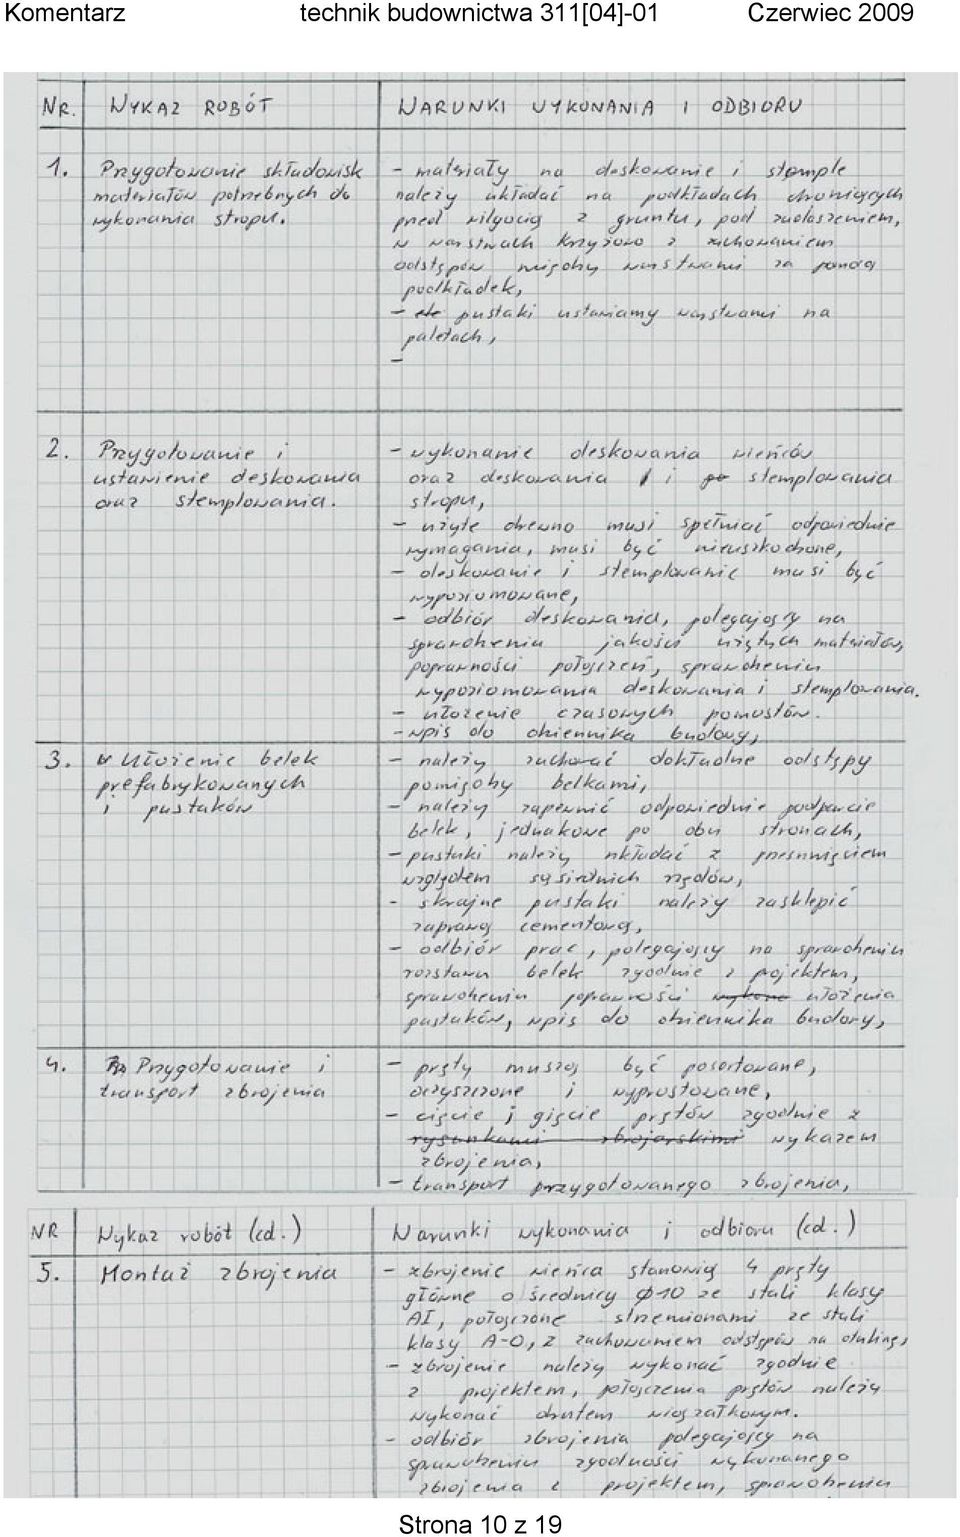 Komentarz technik budownictwa 311[04]-01 Czerwiec 2009
NR. WYKAZ ROBÓT WARUNKI WYKONANIA I ODBIORU
1. Przygotowanie składowisk - materiały na deskowanie i stemple
materiałów potrzebnych do należy układać na podkładach chroniących
wykonania stropu. przed wilgocią z gruntu, pod zadaszeniem,
w warstwach krzyżowo z zachowaniem
odstępów między warstwami za pomocą
podkładek,
- ~~ete~~ pustaki ustawiamy warstwami na
paletach,
-
2. Przygotowanie i - wykonanie deskowania wieńców
ustawienie deskowania oraz deskowania i stemplowania
oraz stemplowania. stropu,
- użyte drewno musi spełniać odpowiednie
wymagania, musi być nieuszkodzone,
- deskowanie i stemplowanie musi być
wypoziomowane,
- odbiór deskowania, polegający na
sprawdzeniu jakości użytych materiałów,
poprawności połączeń, sprawdzeniu
wypoziomowania deskowania i stemplowania.
- ułożenie czasowych pomostów.
- wpis do dziennika budowy,
3. Ułożenie belek - należy zachować dokładne odstępy
prefabrykowanych pomiędzy belkami,
i pustaków - należy zapewnić odpowiednie podparcie
belek, jednakowe po obu stronach,
- pustaki należy układać z przesunięciem
względem sąsiednich rzędów,
- skrajne pustaki należy zasklepić
zaprawą cementową,
- odbiór prac, polegający na sprawdzeniu
rozstawu belek zgodnie z projektem,
sprawdzeniu poprawności ~~wykona~~ ułożenia
pustaków, wpis do dziennika budowy,
4. Przygotowanie i - pręty muszą być posortowane,
transport zbrojenia oczyszczone i wyprostowane,
- cięcie i gięcie prętów zgodnie z
~~rysunkami zbrojarskimi~~ wykazem
zbrojenia,
- transport przygotowanego zbrojenia,
NR Wykaz robót (cd.) Warunki wykonania i odbioru (cd.)
5. Montaż zbrojenia - zbrojenie wieńca stanowią 4 pręty
główne o średnicy Ø10 ze stali klasy
AI, połączone strzemionami ze stali
klasy A-0, z zachowaniem odstępów na otulinę,
- zbrojenie należy wykonać zgodnie
z projektem, połączenia prętów należy
wykonać drutem wiązałkowym.
- odbiór zbrojenia polegający na
sprawdzeniu zgodności wykonanego
zbrojenia z projektem, sprawdzeniu
Strona 10 z 19